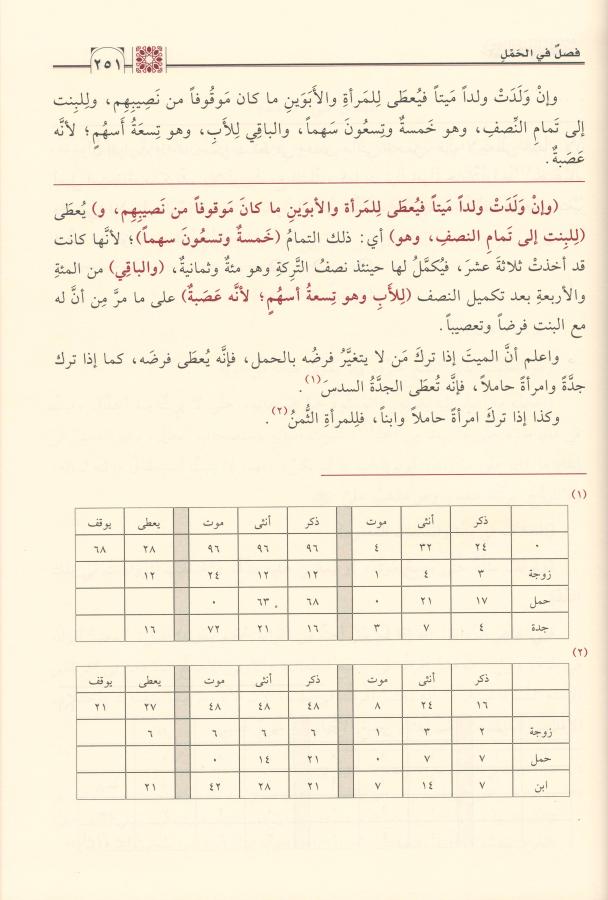 فصلٌ في الحَمْلِ
٢٥١
وإنْ وَلَدَتْ ولداً مَيتاً فيُعطَى لِلمَرأةِ والأَبَوَينِ ما كان مَوقُوفاً من نَصِيبِهِم، ولِلبِنت
إلى تَمامِ النِّصفِ، وهو خَمسةٌ وتِسعُونَ سَهماً، والباقِي لِلأَبِ، وهو تِسعَةُ أَسهُمٍ؛ لأنَّه
عَصَبةٌ.
(وإنْ وَلَدَتْ ولداً مَيتاً فيُعطَى لِلمَرأة والأبوَينِ ما كانَ مَوقوفاً من نَصيبِهِم، و) يُعطَى
(لِلبِنت إلى تَمامِ النصفِ، وهو) أي: ذلك التمامُ (خَمسةٌ وتسعُونَ سهماً)؛ لأنَّها كانت
قد أخذتْ ثلاثةَ عشرَ، فيُكمَّلُ لها حينئذ نصفُ التَّرِكةِ وهو مئةٌ وثمانيةٌ، (والباقِي) من المئةِ
والأربعةِ بعد تكميل النصف (لِلأَبِ وهو تِسعةُ أسهُمٍ؛ لأنَّه عَصَبةٌ) على ما مرَّ مِن أنَّ له
مع البنت فرضاً وتعصيباً.
واعلم أنَّ الميتَ إذا تركَ مَن لا يتغيَّرُ فرضُه بالحمل، فإنَّه يُعطَى فرضَه، كما إذا ترك
جدَّةً وامرأةً حاملاً، فإنَّه تُعطَى الجدَّةُ السدسَ(١).
وكذا إذا تركَ امرأةً حاملاً وابناً، فلِلمرأةِ الثُّمنُ(٢).
(١)
ذكر أنثى موت ذكر أنثى موت يعطى يوقف
٠ ٢٤ ٣٢ ٤ ٩٦ ٩٦ ٩٦ ٢٨ ٦٨
زوجة ٣ ٤ ١ ١٢ ١٢ ٢٤ ١٢
حمل ١٧ ٢١ ٠ ٦٨ ٦٣ ٠
جدة ٤ ٧ ٣ ١٦ ٢١ ٧٢ ١٦
(٢)
ذكر أنثى موت ذكر أنثى موت يعطى يوقف
١٦ ٢٤ ٨ ٤٨ ٤٨ ٤٨ ٢٧ ٢١
زوجة ٢ ٣ ١ ٦ ٦ ٦ ٦
حمل ٧ ٧ ٠ ٢١ ١٤ ٠
ابن ٧ ١٤ ٧ ٢١ ٢٨ ٤٢ ٢١